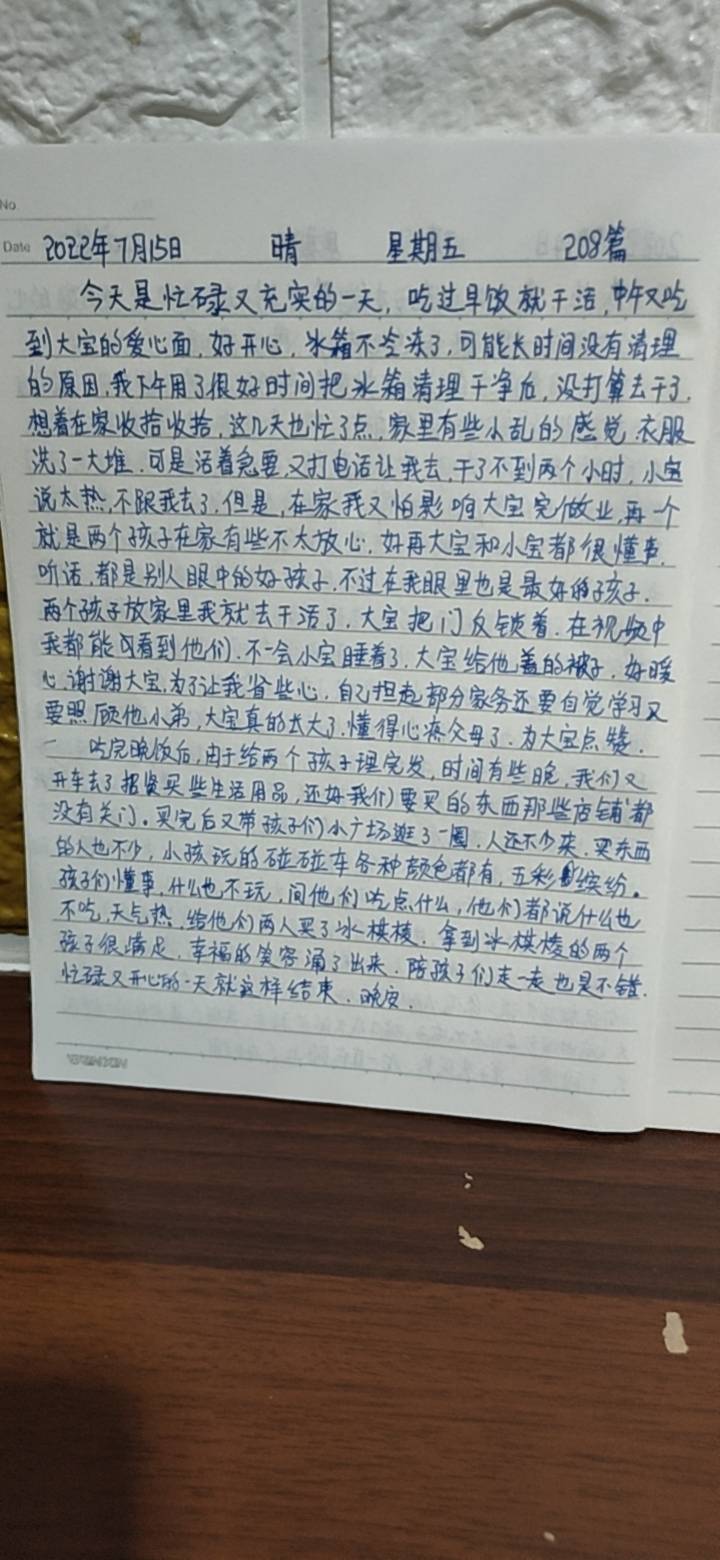 No.
Date 2022年7月15日 晴 星期五 208篇
今天是忙碌又充实的一天，吃过早饭就干活，中午又吃
到大宝的爱心面，好开心，冰箱不冷冻了，可能长时间没有清理
的原因，我下午用了很好时间把冰箱清理干净后，没打算去干了，
想着在家收拾收拾，这几天也忙了点，家里有些小乱的感觉，衣服
洗了一大堆，可是活着急要，又打电话让我去，干了不到两个小时，小宝
说太热，不跟我去了，但是，在家我又怕影响大宝完做业，再一个
就是两个孩子在家有些不太放心，好再大宝和小宝都很懂事，
听话，都是别人眼中的好孩子，不过在我眼里也是最好的孩子，
两个孩子放家里我就去干活了，大宝把门反锁着，在视频中
我都能看到他们，不一会小宝睡着了，大宝给他盖的被子，好暖
心，谢谢大宝，为了让我省些心，自己担起部分家务还要自觉学习又
要照顾他小弟，大宝真的长大了，懂得心疼父母了，为大宝点赞，
吃完晚饭后，由于给两个孩子理完发，时间有些晚，我们又
开车去了招贤买些生活用品，还好我们要买的东西那些店铺都
没有关门。买完后又带孩子们小广场逛了一圈，人还不少来，买东西
的人也不少，小孩玩的碰碰车各种颜色都有，五彩缤纷。
孩子们懂事，什么也不玩，问他们吃点什么，他们都说什么也
不吃，天气热，给他们两人买了冰棋棱，拿到冰棋棱的两个
孩子很满足，幸福的笑容涌了出来，陪孩子们走一走也是不错，
忙碌又开心的一天就这样结束，晚安，